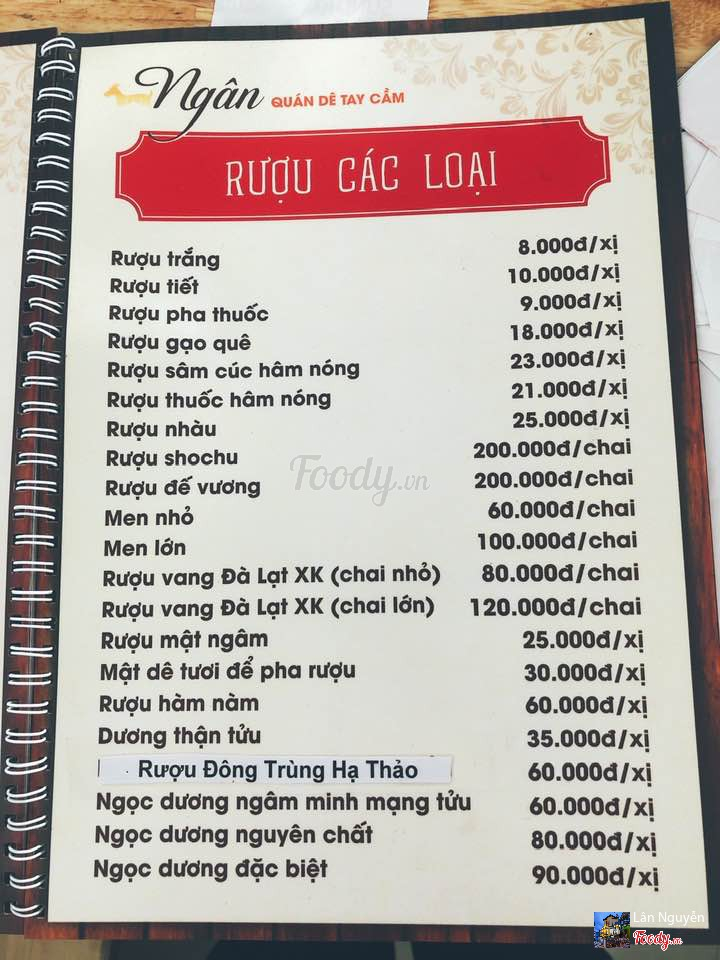 Ngân QUÁN DÊ TAY CẦM
RƯỢU CÁC LOẠI
Rượu trắng 8.000đ/xị
Rượu tiết 10.000đ/xị
Rượu pha thuốc 9.000đ/xị
Rượu gạo quê 18.000đ/xị
Rượu sâm cúc hâm nóng 23.000đ/xị
Rượu thuốc hâm nóng 21.000đ/xị
Rượu nhàu 25.000đ/xị
Rượu shochu 200.000đ/chai
Rượu đế vương 200.000đ/chai
Men nhỏ 60.000đ/chai
Men lớn 100.000đ/chai
Rượu vang Đà Lạt XK (chai nhỏ) 80.000đ/chai
Rượu vang Đà Lạt XK (chai lớn) 120.000đ/chai
Rượu mật ngâm 25.000đ/xị
Mật dê tươi để pha rượu 30.000đ/xị
Rượu hàm nàm 60.000đ/xị
Dương thận tửu 35.000đ/xị
Rượu Đông Trùng Hạ Thảo 60.000đ/xị
Ngọc dương ngâm minh mạng tửu 60.000đ/xị
Ngọc dương nguyên chất 80.000đ/xị
Ngọc dương đặc biệt 90.000đ/xị
Foody.vn
Lân Nguyễn
Foody.vn